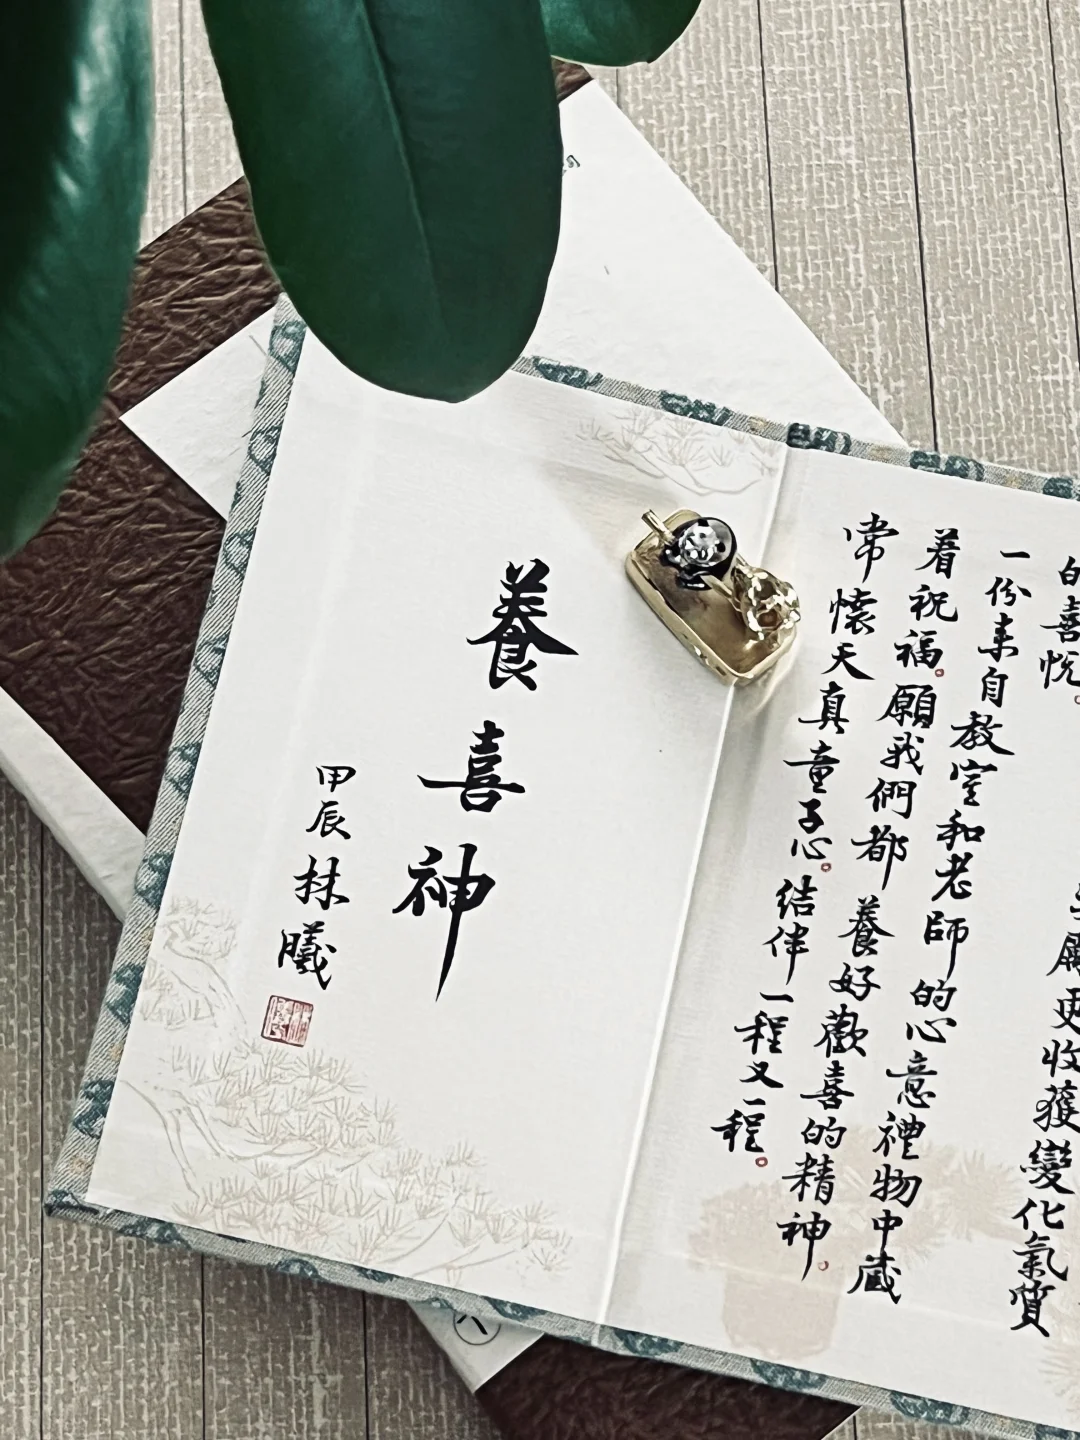 願更收獲變化氣質
的喜悅。
一份来自教室和老師的心意禮物中蔵
着祝福。願我們都養好歡喜的精神。
常懷天真童子心。結伴一程又一程。
養喜神
甲辰 林曦
八